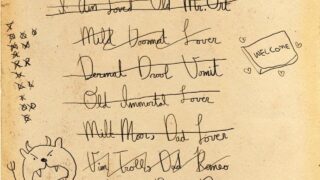 I Am Loved Old Mr. Ort
Mild Doormat Lover
Dermal Drool Vomit
Old Immortal Lover
Dad Lover
Vim Trolls Dad Romeo
WELCOME